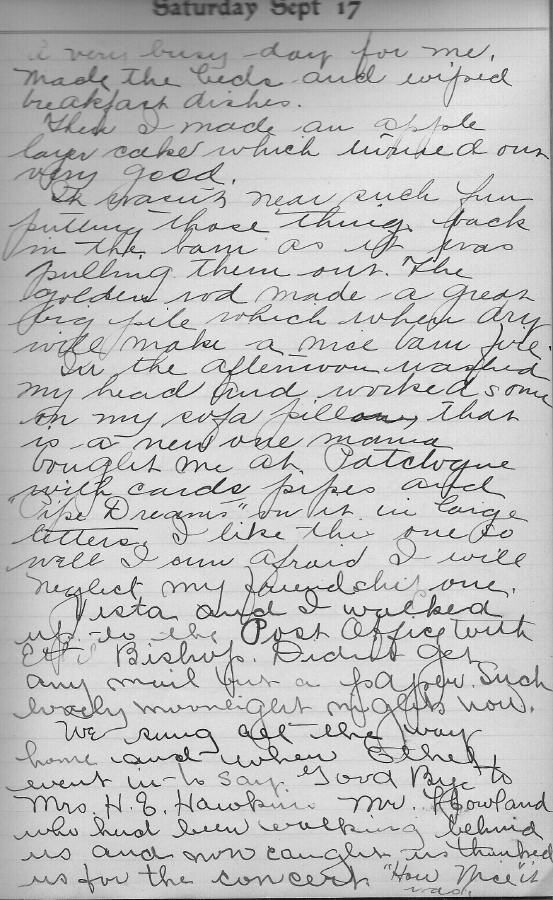 Saturday Sept 17
A very busy day for me.
Made the beds and wiped
breakfast dishes.
Then I made an apple
layer cake which turned out
very good.
It wasn't near such fun
putting those things back
in the barn as it was
pulling them out. The
golden rod made a great
big pile which when dry
will make a nice bam fire.
In the afternoon washed
my head and worked some
on my sofa pillow, that
is a new one mama
bought me at Patchogue
with cards pipes and
"Pipe Dreams" on it in large
letters. I like this one so
well I am afraid I will
neglect my friendship one.
Vista and I walked
up to the Post Office with
Bishop. Didn't get
any mail but a paper. Such
lovely moonlight nights now.
We sung all the way
home and when Ethel
went in to say "Good Bye" to
Mrs. H. E. Hawkins Mr. Howland
who had been walking behind
us and now caught us thanked
us for the concert "How Nice" it
was.